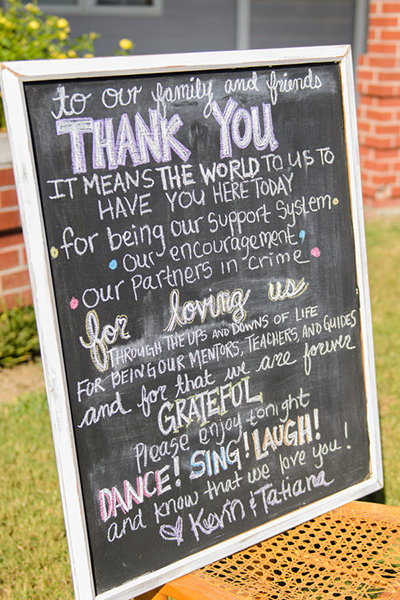 to our family and friends
THANK YOU
IT MEANS THE WORLD TO US TO
HAVE YOU HERE TODAY
for being our support system
our encouragement
our partners in crime
for loving us
THROUGH THE UPS AND DOWNS OF LIFE
FOR BEING OUR MENTORS, TEACHERS, AND GUIDES
and for that we are forever
GRATEFUL
Please enjoy tonight
DANCE! SING! LAUGH!
and know that we love you!
Kevin & Tatiana